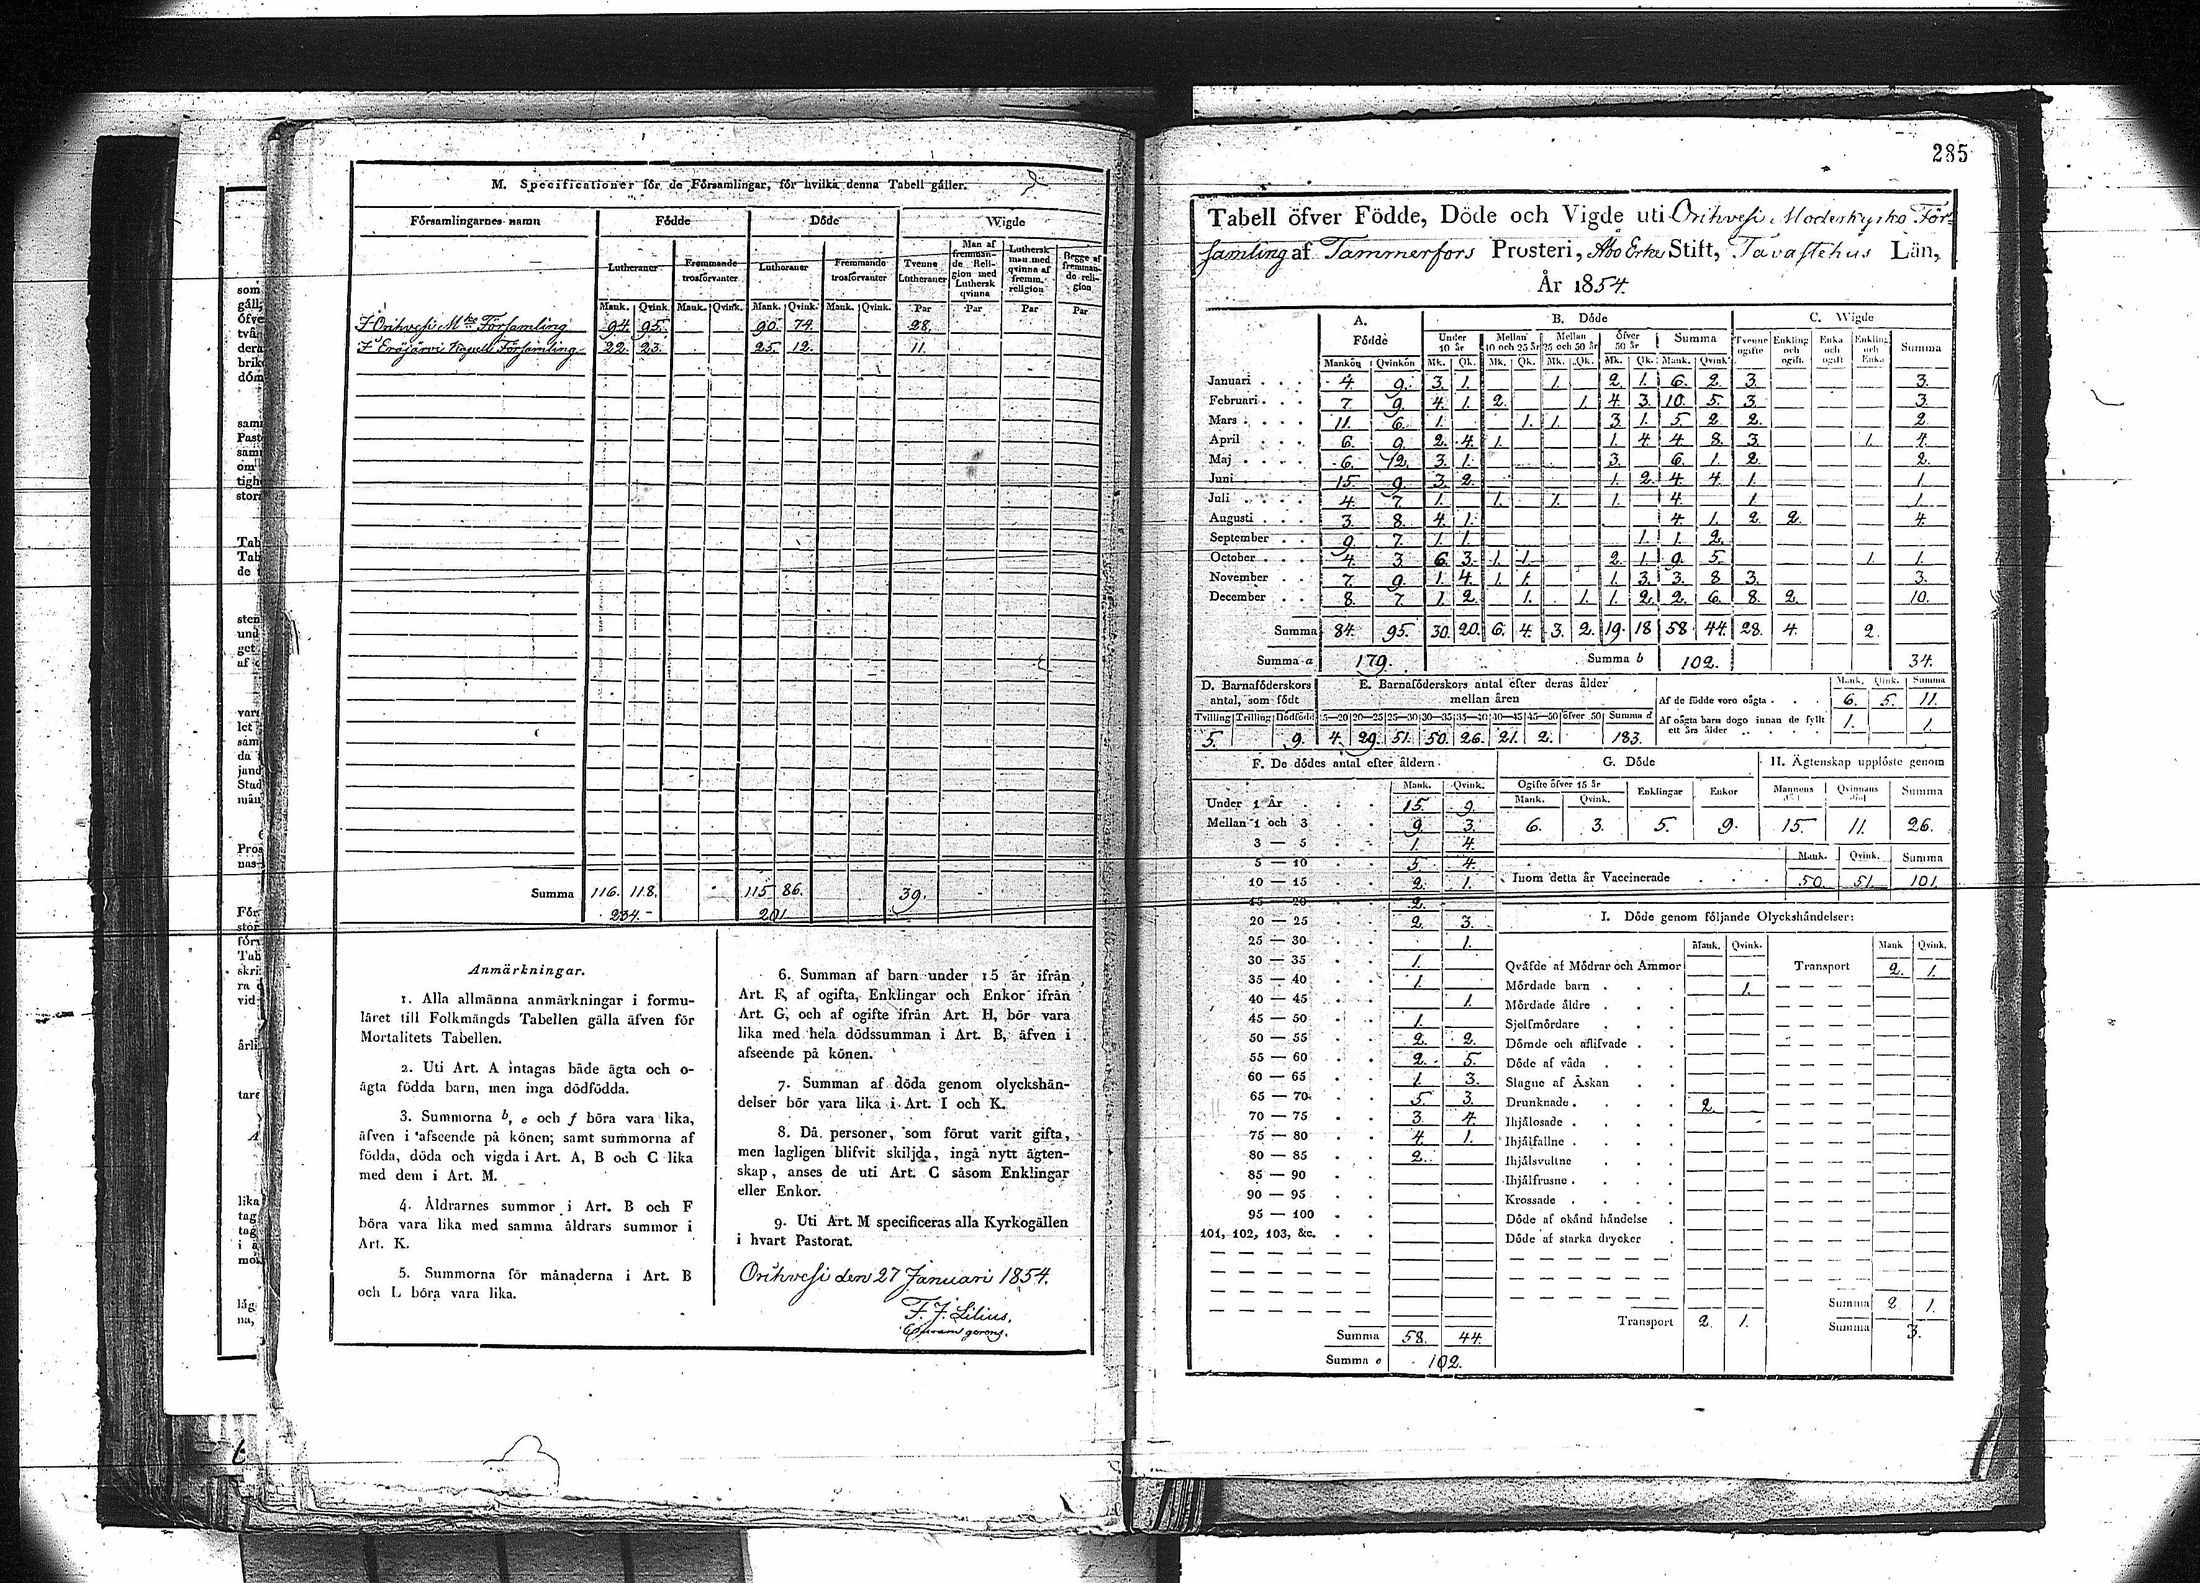 M. Specificationer för de Församlingar, för hvilka denna Tabell gäller.
Församlingarnes namn Födde Döde Wigde
Lutheraner Fremmande trosförvanter Lutheraner Fremmande trosförvanter Tvenne Lutheraner Man af fremmande Religion med Luthersk qvinna Luthersk man med qvinna af fremm. religion Begge af fremmande religion
Mank. Qvink. Mank. Qvink. Mank. Qvink. Mank. Qvink. Par Par Par Par
I Orihvesi Mke Församling 94. 95. 90. 74. 28.
I Eräjärvi Kapell Församling 22. 23. 25. 12. 11.
Summa 116. 118. 115 86. 39.
234.- 201
Anmärkningar.
1. Alla allmänna anmärkningar i formu-
läret till Folkmängds Tabellen gälla äfven för
Mortalitets Tabellen.
2. Uti Art. A intagas både ägta och o-
ägta födda barn, men inga dödfödda.
3. Summorna b, e och f böra vara lika,
äfven i afseende på könen; samt summorna af
födda, döda och vigda i Art. A, B och C lika
med dem i Art. M.
4. Åldrarnes summor i Art. B och F
böra vara lika med samma åldrars summor i
Art. K.
5. Summorna för månaderna i Art. B
och L böra vara lika.
6. Summan af barn under 15 år ifrån
Art. F, af ogifta, Enklingar och Enkor ifrån
Art. G, och af ogifte ifrån Art. H, bör vara
lika med hela dödssumman i Art. B, äfven i
afseende på könen.
7. Summan af döda genom olyckshän-
delser bör vara lika i Art. I och K.
8. Då personer, som förut varit gifta,
men lagligen blifvit skiljda, ingå nytt ägten-
skap, anses de uti Art. C såsom Enklingar
eller Enkor.
9. Uti Art. M specificeras alla Kyrkogällen
i hvart Pastorat.
Orihvesi den 27 Januari 1854.
F. J. Lilius,
285
Tabell öfver Födde, Döde och Vigde uti Orihvesi Moderkyrko För-
samling af Tammerfors Prosteri, Åbo Erke Stift, Tavastehus Län,
År 1854.
A. Födde B. Döde C. Wigde
Under 10 år Mellan 10 och 25 år Mellan 25 och 50 år Öfver 50 år Summa Tvenne ogifte Enkling och ogift Enka och ogift Enkling och Enka Summa
Mankön Qvinkön Mk. Qk. Mk. Qk. Mk. Qk. Mk. Qk. Mank. Qvink.
Januari 4. 9. 3. 1. 1. 2. 1. 6. 2. 3. 3.
Februari 7. 9. 4. 1. 2. 1. 4. 3. 10. 5. 3. 3.
Mars 11. 6. 1. 1. 1. 3. 1. 5. 2. 2. 2.
April 6. 9. 2. 4. 1. 1. 4. 4. 8. 3. 1. 4.
Maj 6. 12. 3. 1. 3. 6. 1. 2. 2.
Juni 15. 9. 3. 2. 1. 2. 4. 4. 1. 1.
Juli 4. 7. 1. 1. 1. 1. 4. 1. 1.
Augusti 3. 8. 4. 1. 4. 1. 2. 2. 4.
September 9. 7. 1. 1. 1. 1. 2.
October 4. 3. 6. 3. 1. 1. 2. 1. 9. 5. 1. 1.
November 7. 9. 1. 4. 1. 1. 1. 3. 3. 8 3. 3.
December 8. 7. 1. 2. 1. 1. 1. 2. 2. 6. 8. 2. 10.
Summa 84. 95. 30. 20. 6. 4. 3. 2. 19. 18 58 44. 28. 4. 2.
Summa a 179. Summa b 102. 34.
D. Barnaföderskors antal, som födt
Tvilling Trilling Dödfödd
5. 9.
E. Barnaföderskors antal efter deras ålder mellan åren
15—20 20—25 25—30 30—35 35—40 40—45 45—50 öfver 50 Summa d
4. 29. 51. 50. 26. 21. 2. 183.
Mank. Qvink. Summa
Af de födde voro oägta 6. 5. 11.
Af oägta barn dogo innan de fyllt ett års ålder 1. 1.
F. De dödes antal efter åldern
Mank. Qvink.
Under 1 År 15. 9.
Mellan 1 och 3 9. 3.
3 — 5 1. 4.
5 — 10 5. 4.
10 — 15 2. 1.
15 — 20 2.
20 — 25 2. 3.
25 — 30 1.
30 — 35 1.
35 — 40 1.
40 — 45 1.
45 — 50 1.
50 — 55 2. 2.
55 — 60 2. 5.
60 — 65 1. 3.
65 — 70 5. 3.
70 — 75 3. 4.
75 — 80 4. 1.
80 — 85 2.
85 — 90
90 — 95
95 — 100
101, 102, 103, &c.
Summa 58. 44.
Summa e 102.
G. Döde
Ogifte öfver 15 år Enklingar Enkor
Mank. Qvink.
6. 3. 5. 9.
H. Ägtenskap upplöste genom
Mannens död Qvinnans död Summa
15. 11. 26.
Mank. Qvink. Summa
Inom detta år Vaccinerade 50. 51. 101.
I. Döde genom följande Olyckshändelser:
Mank. Qvink. Mank Qvink.
Qväfde af Mödrar och Ammor Transport 2. 1.
Mördade barn 1.
Mördade äldre
Sjelfmördare
Dömde och aflifvade
Döde af våda
Slagne af Åskan
Drunknade 2.
Ihjälosade
Ihjälfallne
Ihjälsvultne
Ihjälfrusne
Krossade
Döde af okänd händelse
Döde af starka drycker
Summa 2 1.
Transport 2. 1. Summa 3.